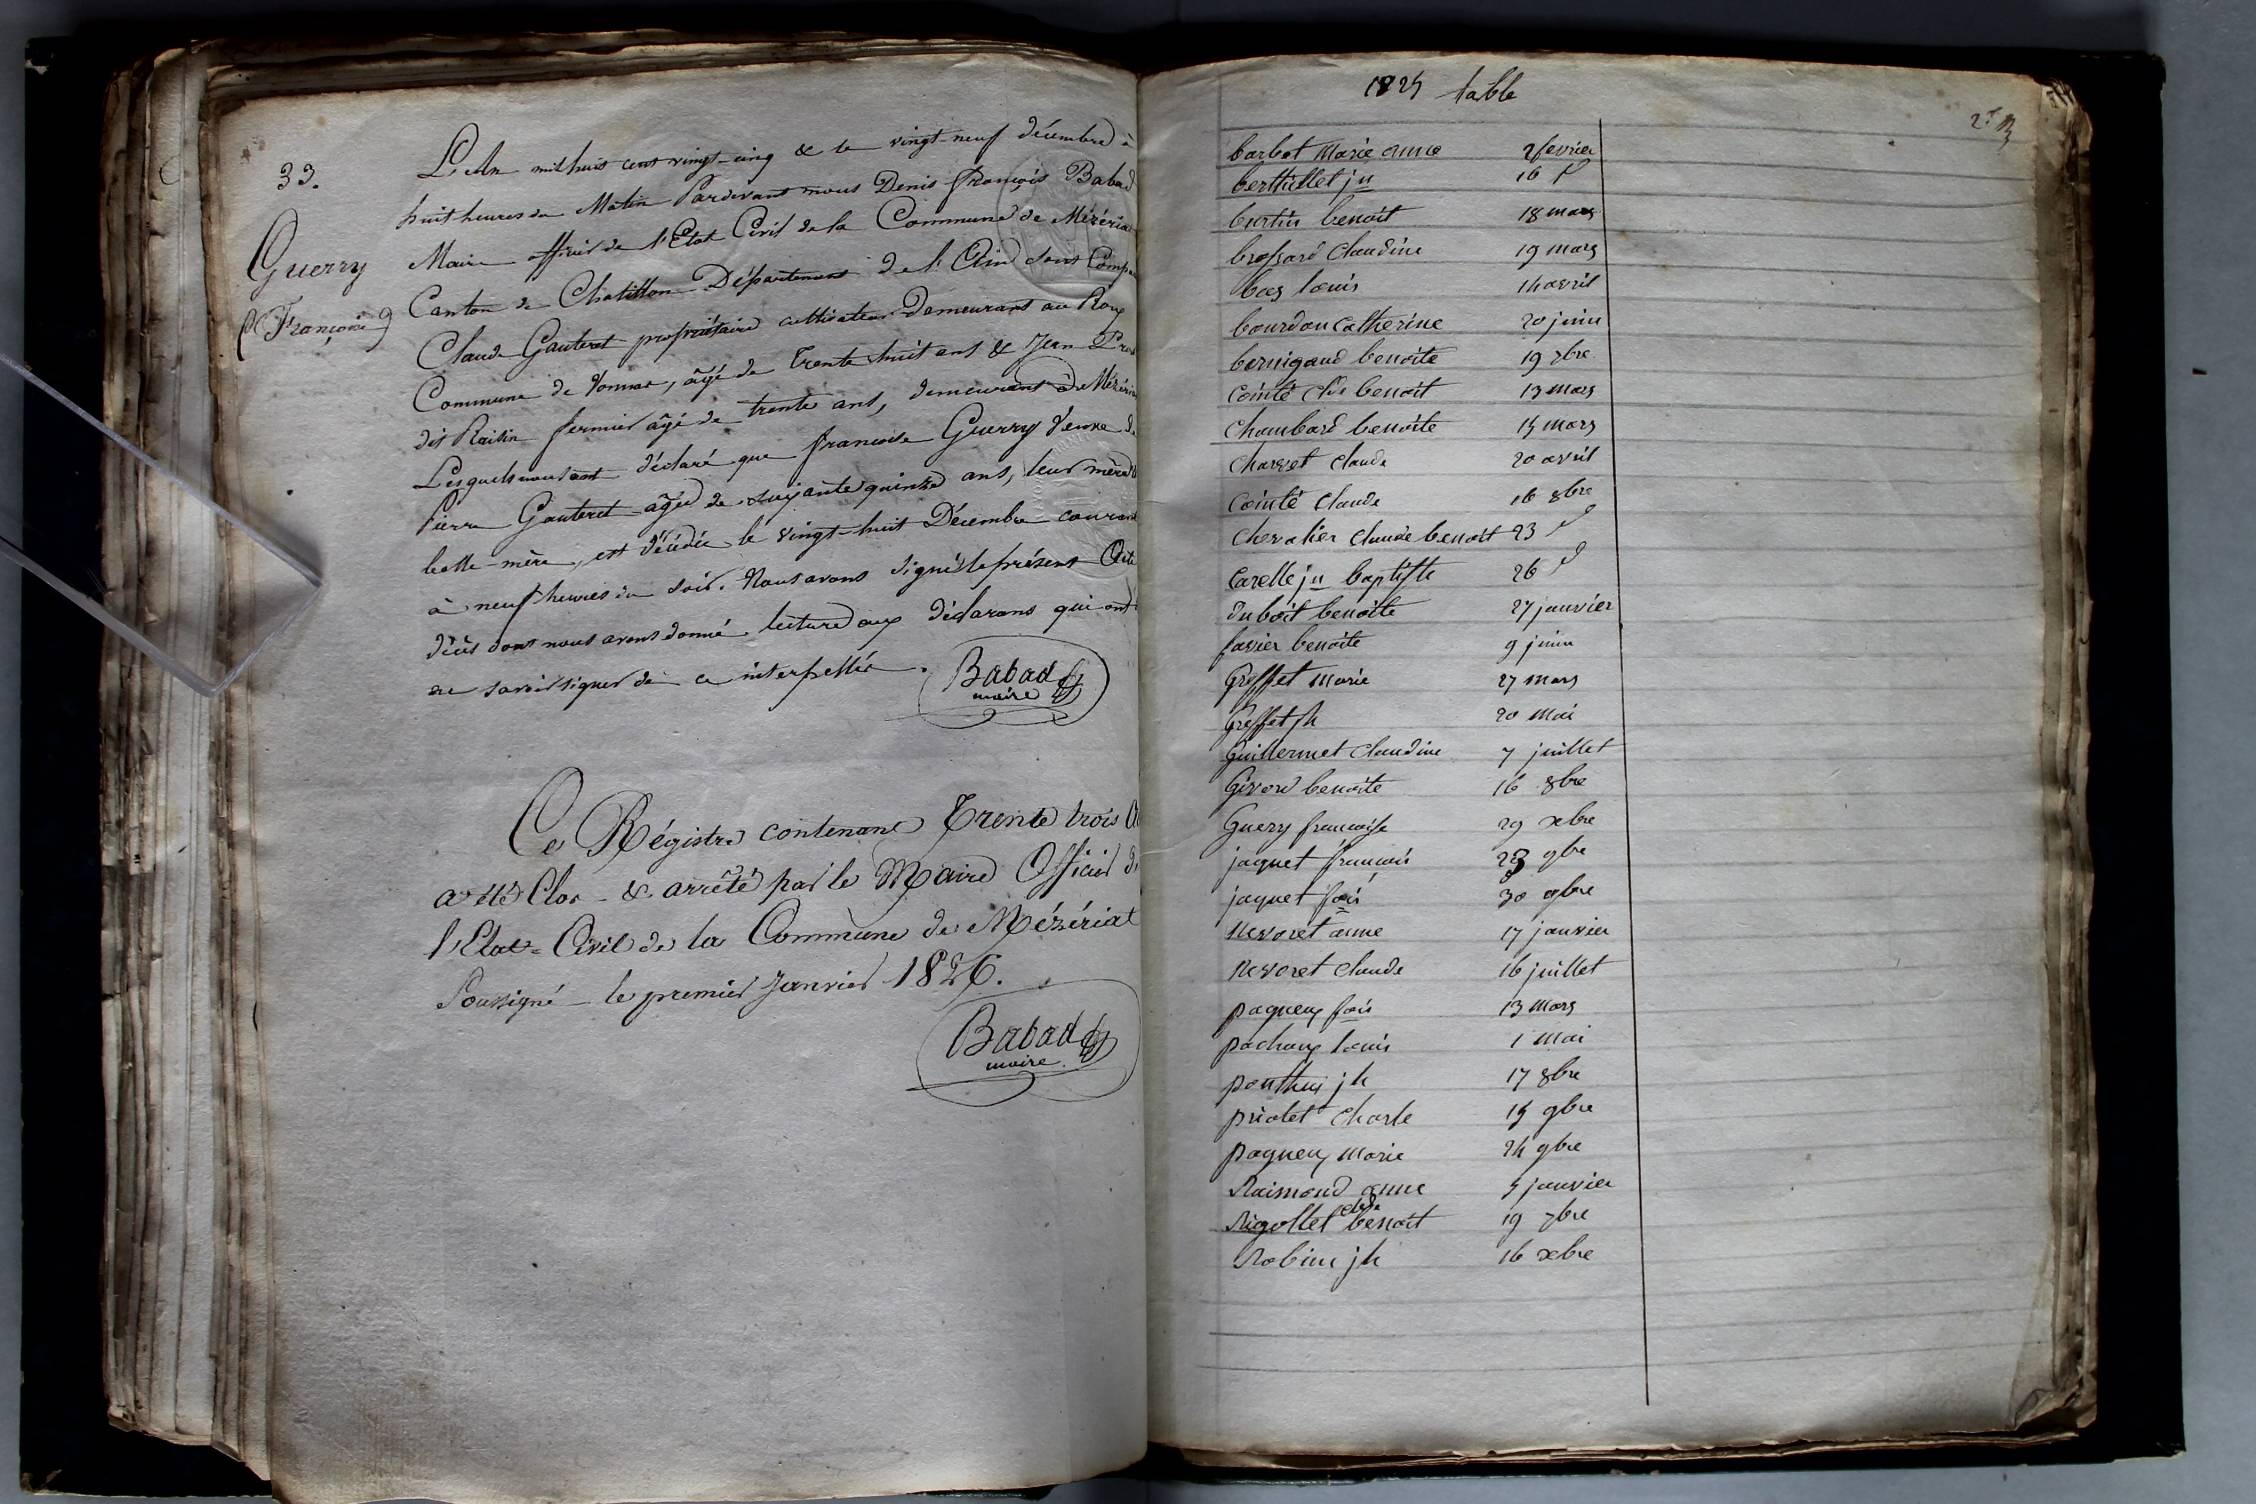 33.
Guerry
(Françoise)
L'An mil huit cent vingt-cinq & le vingt-neuf décembre à
huit heures du Matin Pardevant nous Denis françois Babad
Maire officier de l'Etat Civil de la Commune de Mézériat
Canton de Chatillon Département de l'Ain sont Comparu
Claude Gauteret propriétaire cultivateur Demeurant au Roux
Commune de Vonnas, âgé de Trente huit ans & Jean
dit Raisin fermier âgé de trente ans, demeurant à Mézériat
Lesquels nous ont déclaré que françoise Guerry Veuve de
Pierre Gauteret âgée de soixante quinze ans, leur mère &
belle-mère, est décédée le vingt-huit Décembre courant
à neuf heures du soir. Nous avons signé le présent Acte
décès dont nous avons donné lecture aux déclarans qui ont
ne savoir signer de ce interpellés.
Babad
maire
Ce Régistre contenant Trente trois
a été Clos & arrêté par le Maire Officier de
l'Etat-Civil de la Commune de Mézériat
Soussigné le premier Janvier 1826.
Babad
maire
1825 table
barbet Marie anne 2 fevrier
berthillet jn 16 d
burtin benoit 18 mars
brossard Claudine 19 mars
bas louis 14 avril
bourdon catherine 20 juin
bernigaud benoite 19 7bre
Cointé Cde benoit 13 mars
Chambard benoite 15 mars
Charvet Claude 20 avril
Cointé Claude 16 8bre
Chevalier Claude benoit 23 d
Carelle jn baptiste 26 d
Duboit benoite 27 janvier
favier benoite 9 juin
Greffet marie 27 mars
Greffet jh 20 mai
Guillermet Claudine 7 juillet
Givord benoite 16 8bre
Guery francoise 29 xbre
jaquet francois 23 9bre
jaquet fois 30 9bre
Nevoret anne 17 janvier
Nevoret Claude 16 juillet
paqueux fois 13 mars
pochoux louis 1 mai
ponthus jh 17 8bre
priolet Charle 15 9bre
paqueux marie 24 9bre
Raimond anne 5 janvier
Rigollet Cde benoit 19 7bre
Robin jh 16 xbre